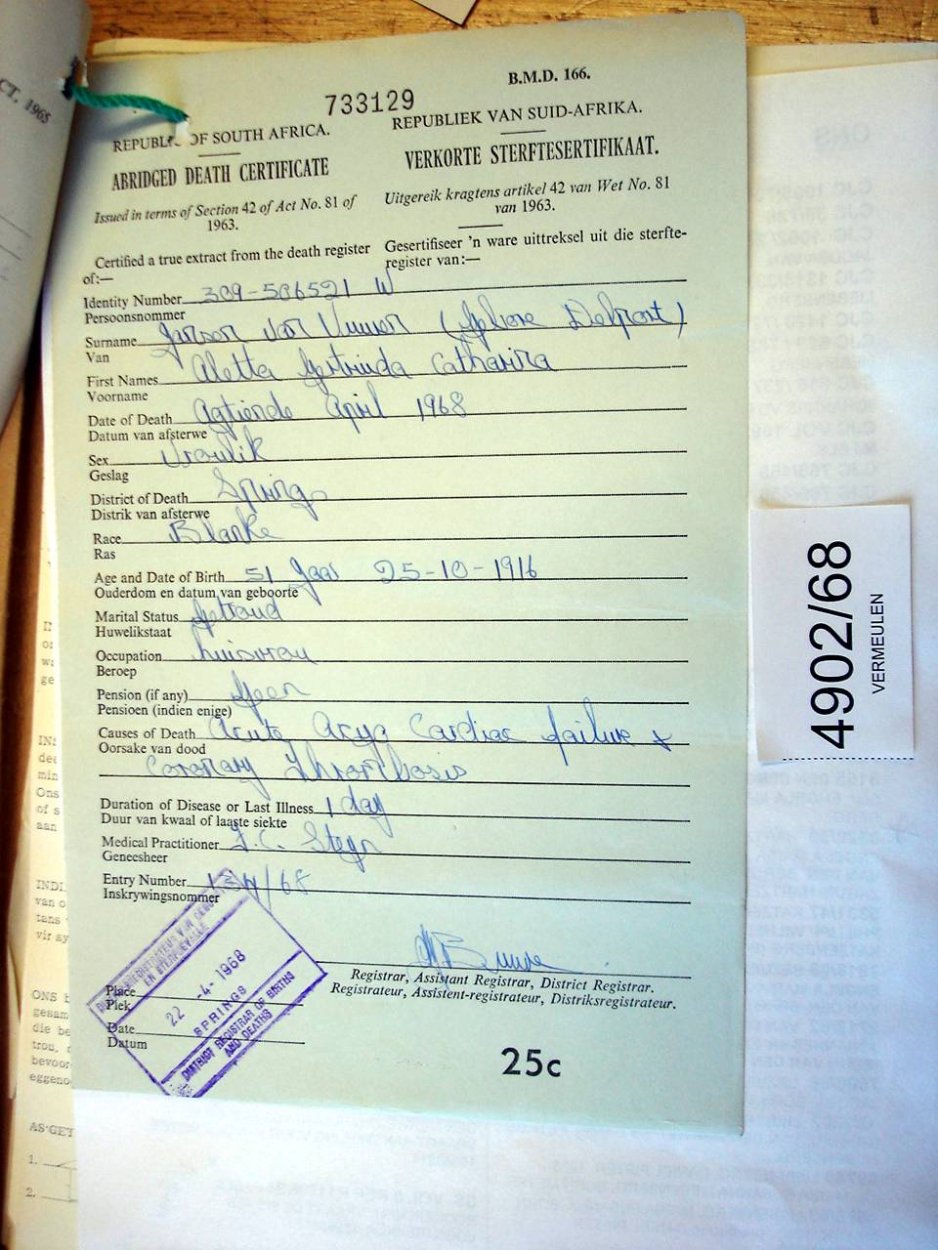 CT, 1965
B.M.D. 166.
733129
REPUBLIC OF SOUTH AFRICA.
REPUBLIEK VAN SUID-AFRIKA.
ABRIDGED DEATH CERTIFICATE
VERKORTE STERFTESERTIFIKAAT.
Issued in terms of Section 42 of Act No. 81 of
1963.
Uitgereik kragtens artikel 42 van Wet No. 81
van 1963.
Certified a true extract from the death register
of:—
Gesertifiseer 'n ware uittreksel uit die sterfte-
register van:—
Identity Number 309-506521 W
Persoonsnommer
Surname Jansen van Vuuren (Gebore Delport)
Van
First Names Aletta Gertruida Catharina
Voorname
Date of Death Agtiende April 1968
Datum van afsterwe
Sex Vroulik
Geslag
District of Death Springs
Distrik van afsterwe
Race Blanke
Ras
Age and Date of Birth 51 Jaar 25-10-1916
Ouderdom en datum van geboorte
Marital Status Getroud
Huwelikstaat
Occupation Huisvrou
Beroep
Pension (if any) Geen
Pensioen (indien enige)
Causes of Death Acute Cardiac failure +
Oorsake van dood
Coronary Thrombosis
Duration of Disease or Last Illness 1 day
Duur van kwaal of laaste siekte
Medical Practitioner Steyn
Geneesheer
Entry Number /68
Inskrywingsnommer
EN STERFGEVALLE
22 -4- 1968
SPRINGS
DISTRICT REGISTRAR OF BIRTHS
AND DEATHS
Registrar, Assistant Registrar, District Registrar.
Registrateur, Assistent-registrateur, Distriksregistrateur.
Place
Plek
Date
Datum
25c
4902/68
VERMEULEN
INDI
van o
tans
vir sy
ONS
gesam
die be
trou,
bevoor
eggeno
AS GET
1.
2.